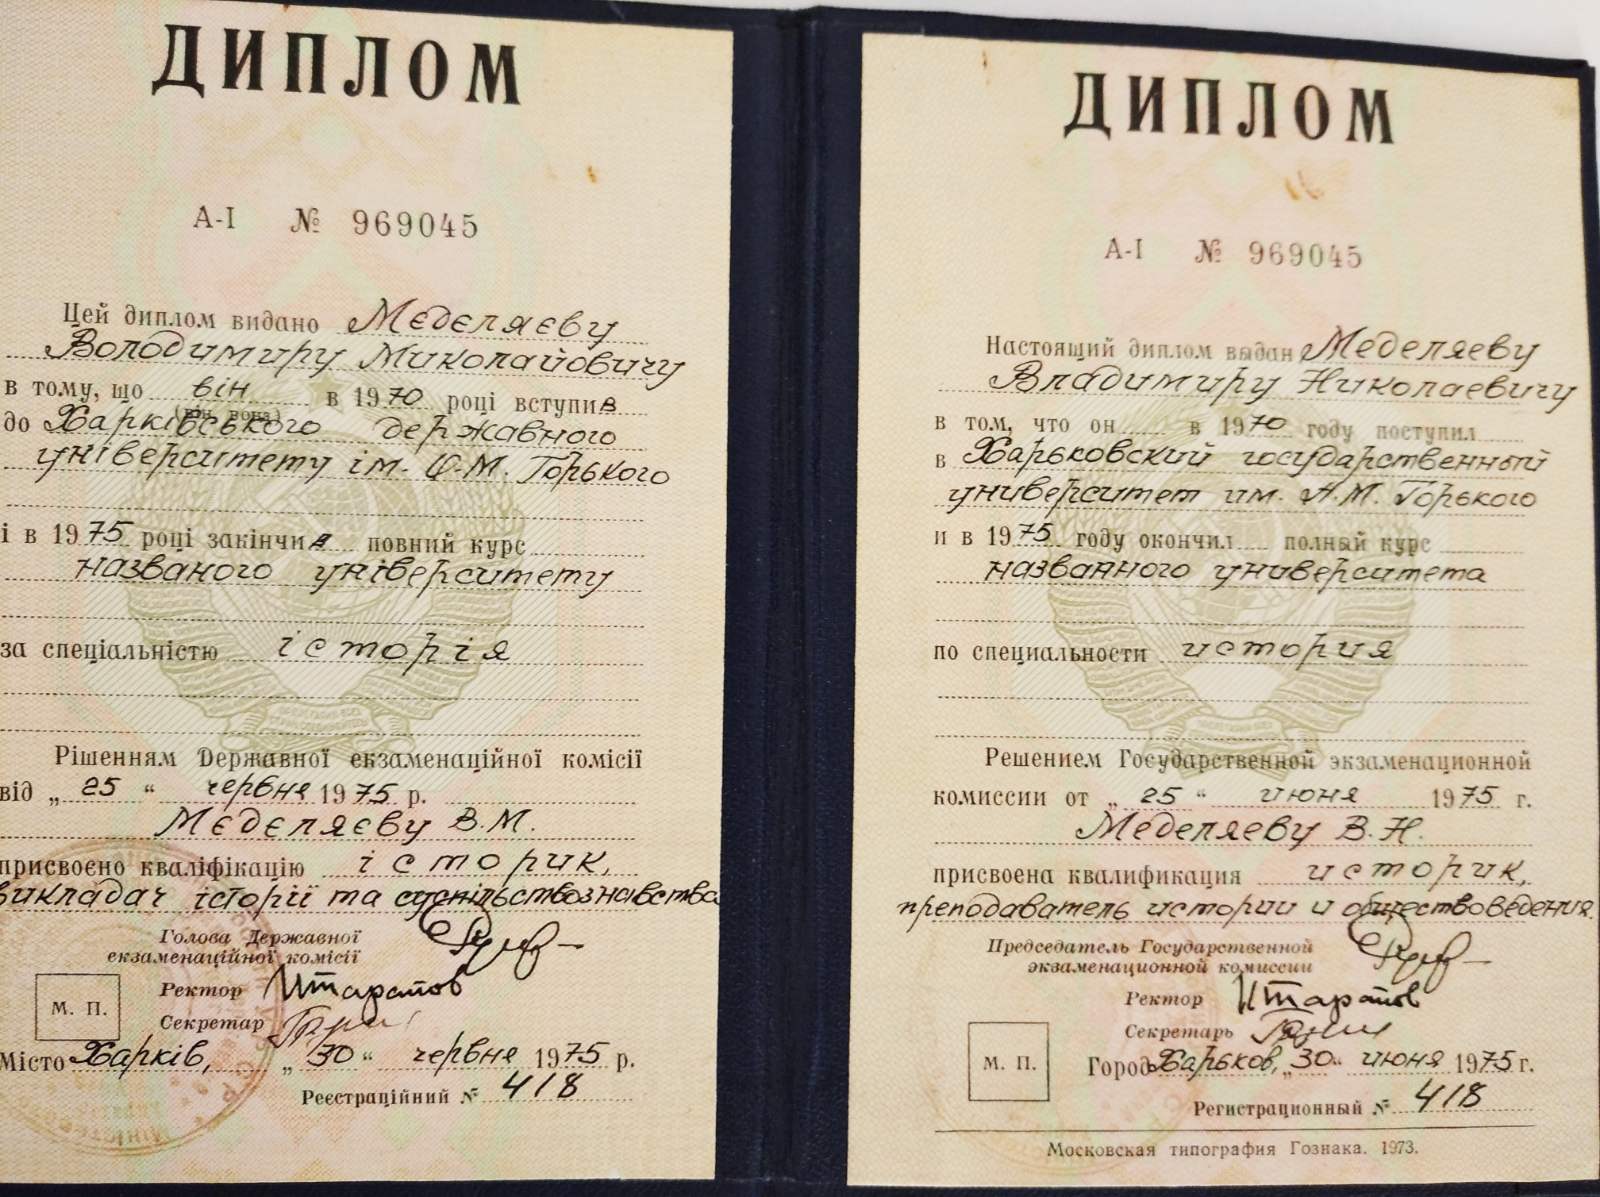 ДИПЛОМ
А-І № 969045
Цей диплом видано Медєляєву
Володимиру Миколайовичу
в тому, що він в 1970 році вступив
(він, вона)
до Харківського державного
університету ім. О.М. Горького
і в 1975 році закінчив повний курс
названого університету
за спеціальністю історія
Рішенням Державної екзаменаційної комісії
від „25“ червня 1975 р.
Мєдєляєву В.М.
присвоєно кваліфікацію історик,
викладач історії та суспільствознавства
Голова Державної
екзаменаційної комісії
Ректор
М. П.
Секретар
Місто Харків, „30“ червня 1975 р.
Реєстраційний № 418
ДИПЛОМ
А-І № 969045
Настоящий диплом выдан Меделяеву
Владимиру Николаевичу
в том, что он в 1970 году поступил
в Харьковский государственный
университет им. А.М. Горького
и в 1975 году окончил полный курс
названного университета
по специальности история
Решением Государственной экзаменационной
комиссии от „25“ июня 1975 г.
Меделяеву В.Н.
присвоена квалификация историк,
преподаватель истории и обществоведения.
Председатель Государственной
экзаменационной комиссии
Ректор
Секретарь
М. П.
Город Харьков, „30“ июня 1975 г.
Регистрационный № 418
Московская типография Гознака. 1973.